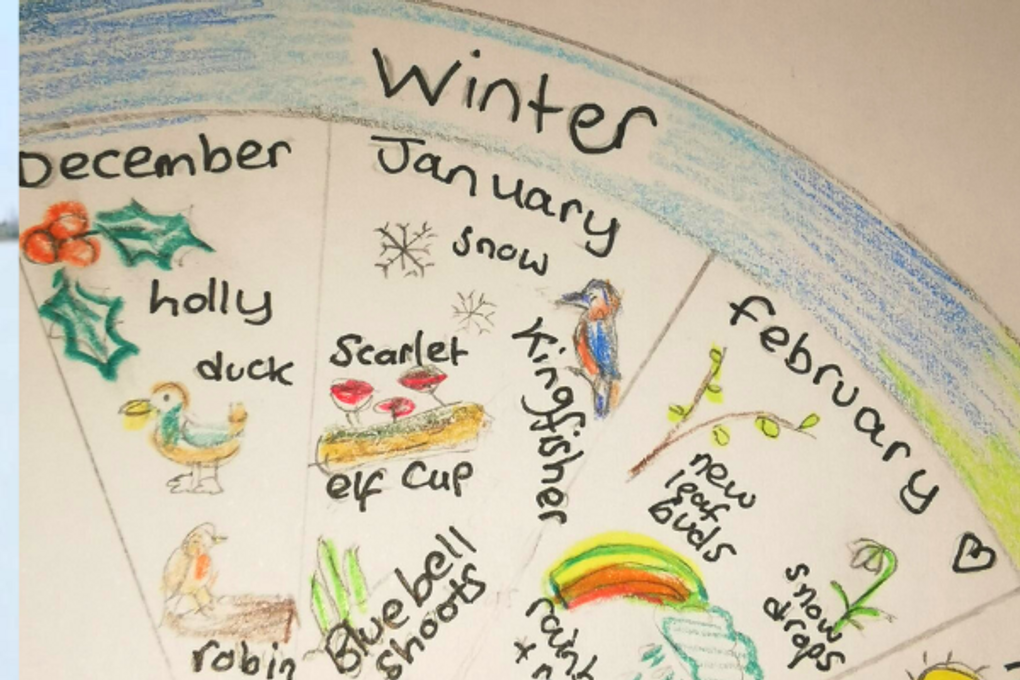 Winter
December
holly
duck
robin
January
snow
Scarlet
elf Cup
Kingfisher
Bluebell
shoots
february
new
leaf
buds
snow
drops